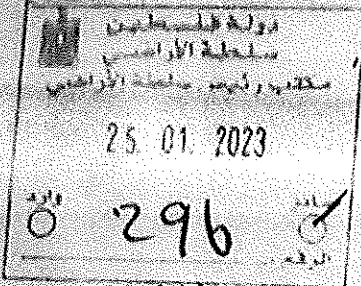 دولة فلسطين
سلطة الأراضي
مكتب رئيس سلطة الأراضي
25 01 2023
وارد
296
صادر
الرقم